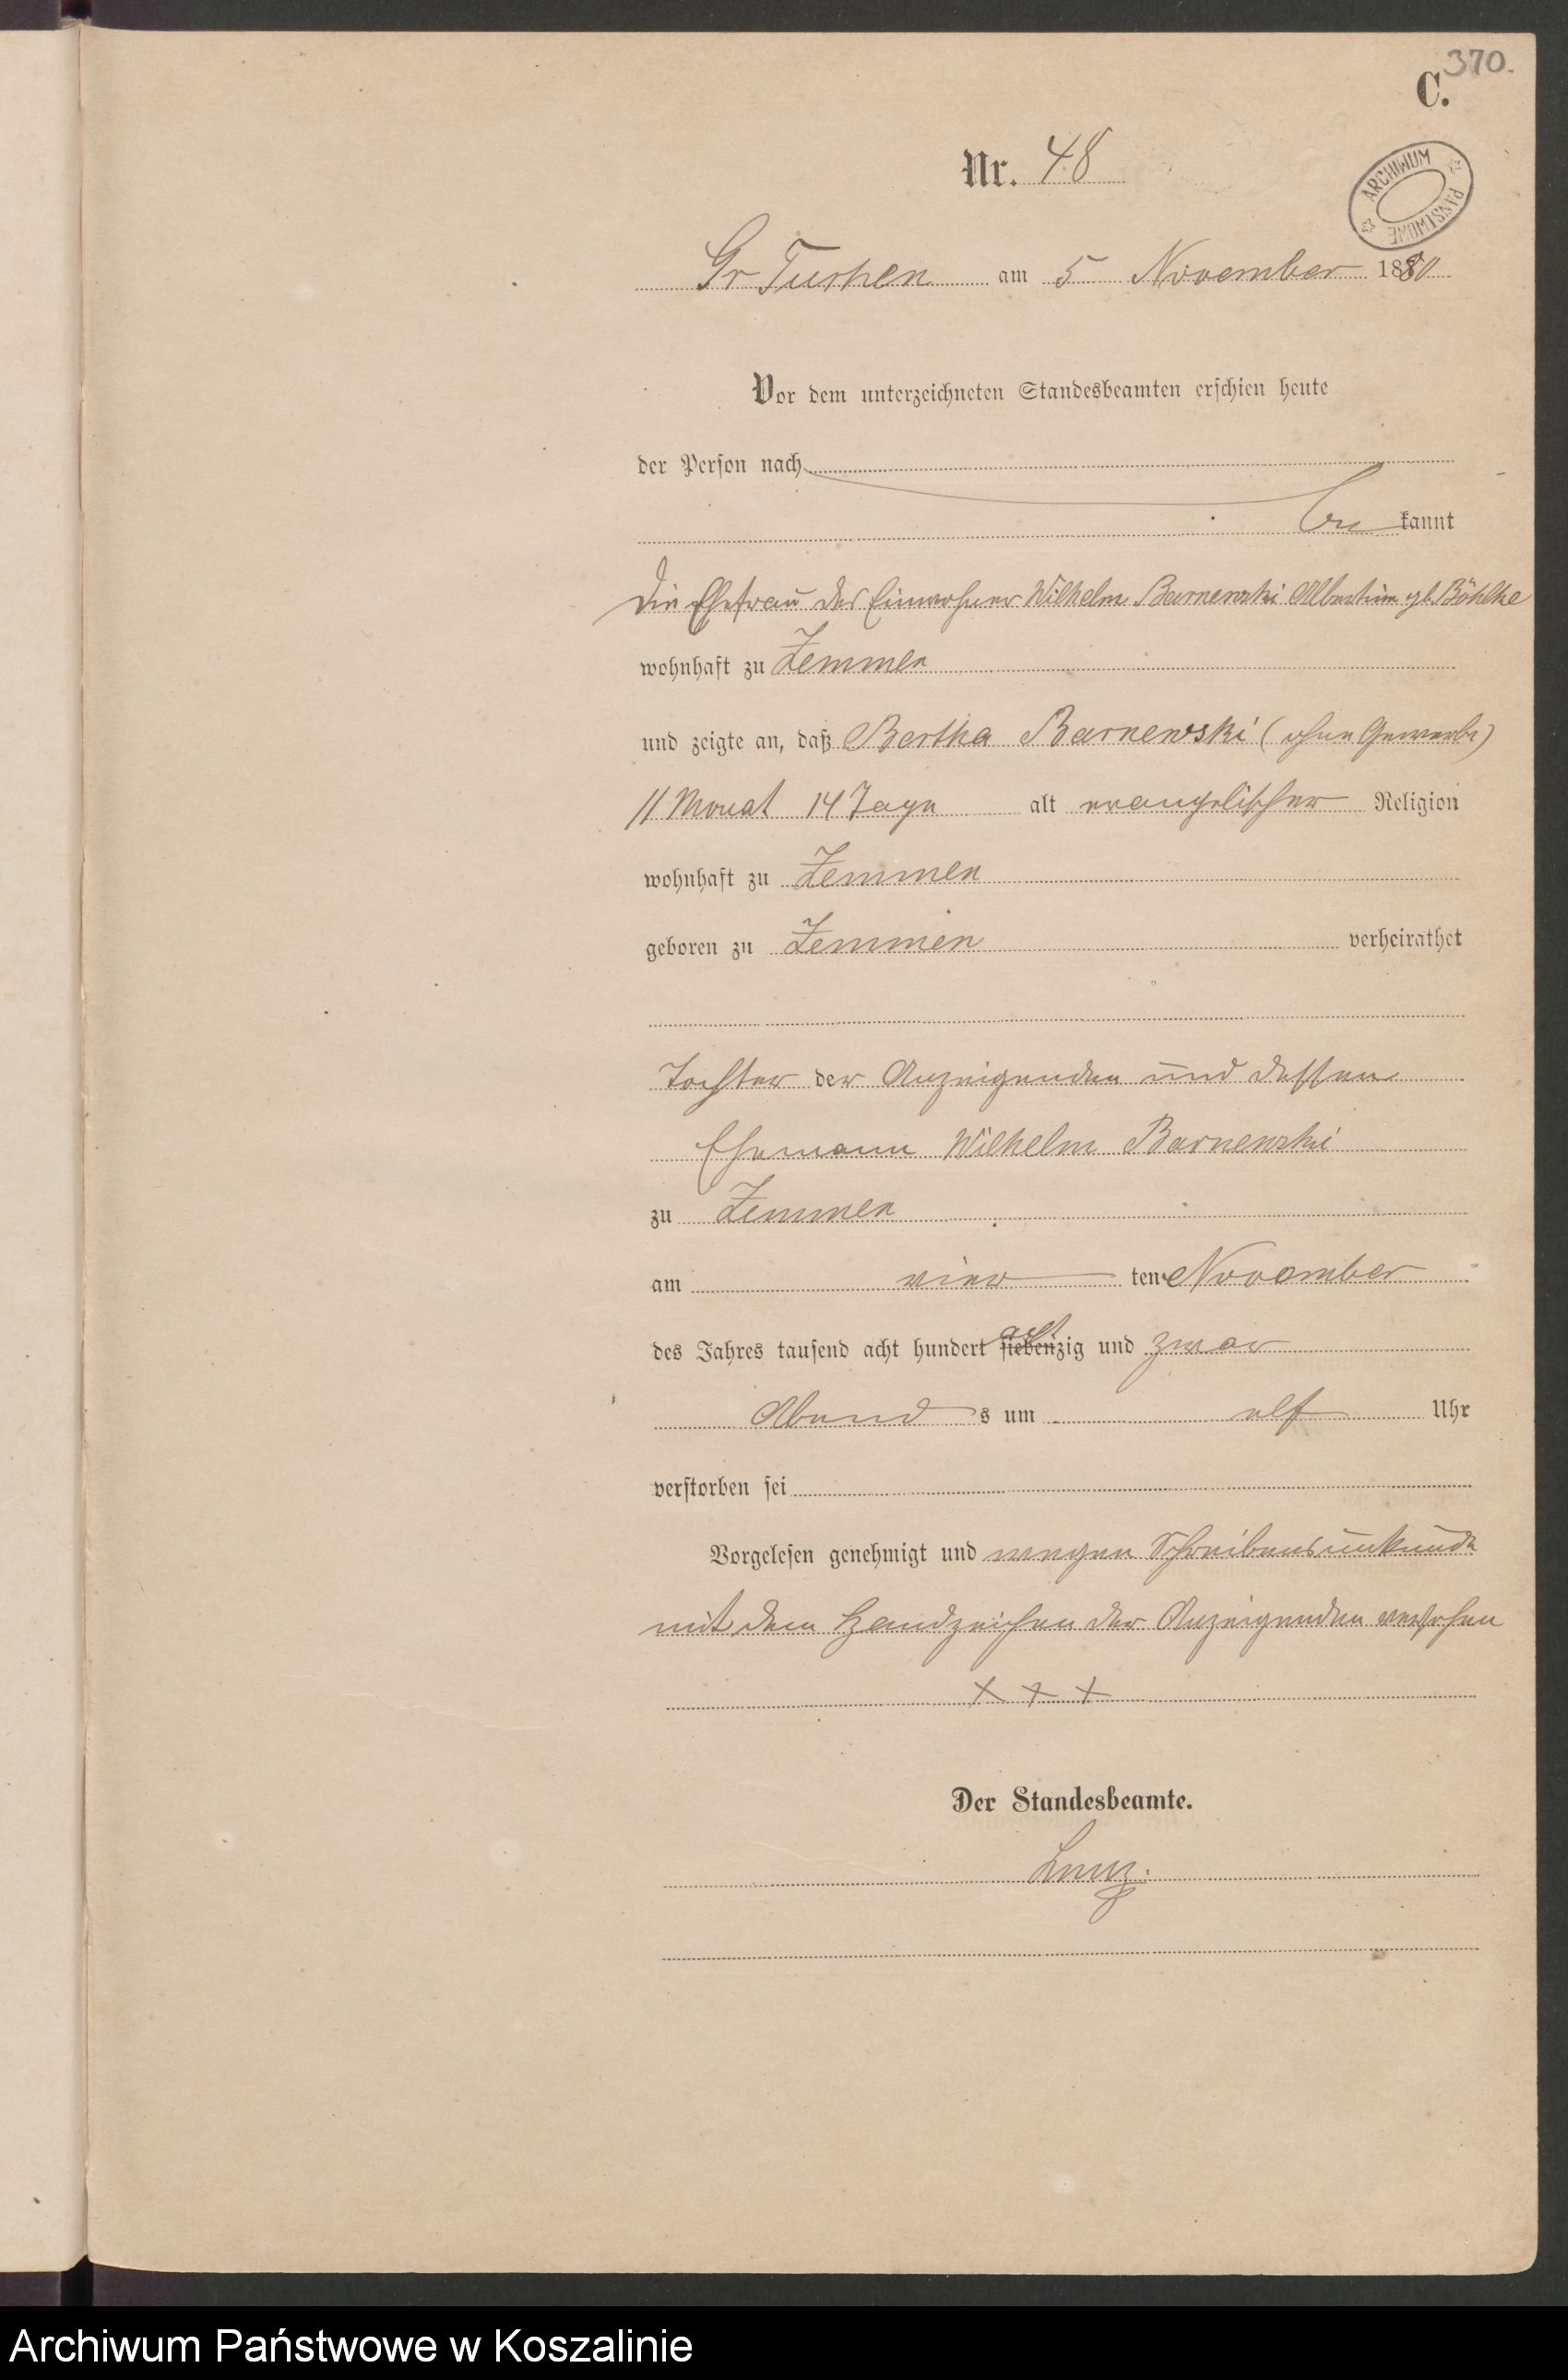 370.
C.
Nr. 48
ARCHIWUM PAŃSTWOWE
Gr Tuchen am 5 November 1880
Vor dem unterzeichneten Standesbeamten erschien heute
der Person nach
be kannt
die Ehefrau des Einwohner Wilhelm Barnewski Albertine gb. Böhlke
wohnhaft zu Zemmen
und zeigte an, daß Bertha Barnewski (ohne Gewerbe)
11 Monat 14 Tage alt evangelischer Religion
wohnhaft zu Zemmen
geboren zu Zemmen verheirathet
Tochter der Anzeigenden und dessen
Ehemann Wilhelm Barnewski
zu Zemmen
am vier ten November
des Jahres tausend acht hundert siebenzig acht und zwar
Abend s um elf Uhr
verstorben sei
Vorgelesen genehmigt und wegen Schreibensunkunde
mit dem Handzeichen der Anzeigenden versehen
+ + +
Der Standesbeamte.
Archiwum Państwowe w Koszalinie